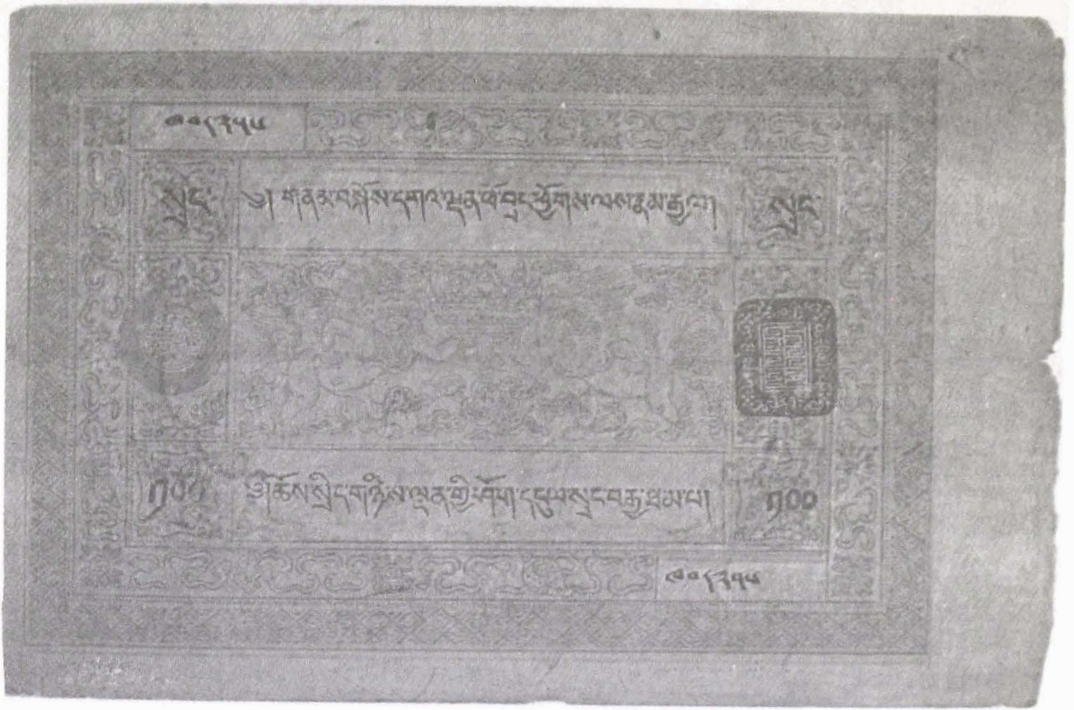 སྲང་ ༄། གནམ་བསྐོས་དགའ་ལྡན་ཕོ་བྲང་ཕྱོགས་ལས་རྣམ་རྒྱལ། སྲང་
༡༠༠ ༄།ཆོས་སྲིད་གཉིས་ལྡན་གྱི་ཤོག་དངུལ་སྲང་བརྒྱ་ཐམ་པ། ༡༠༠